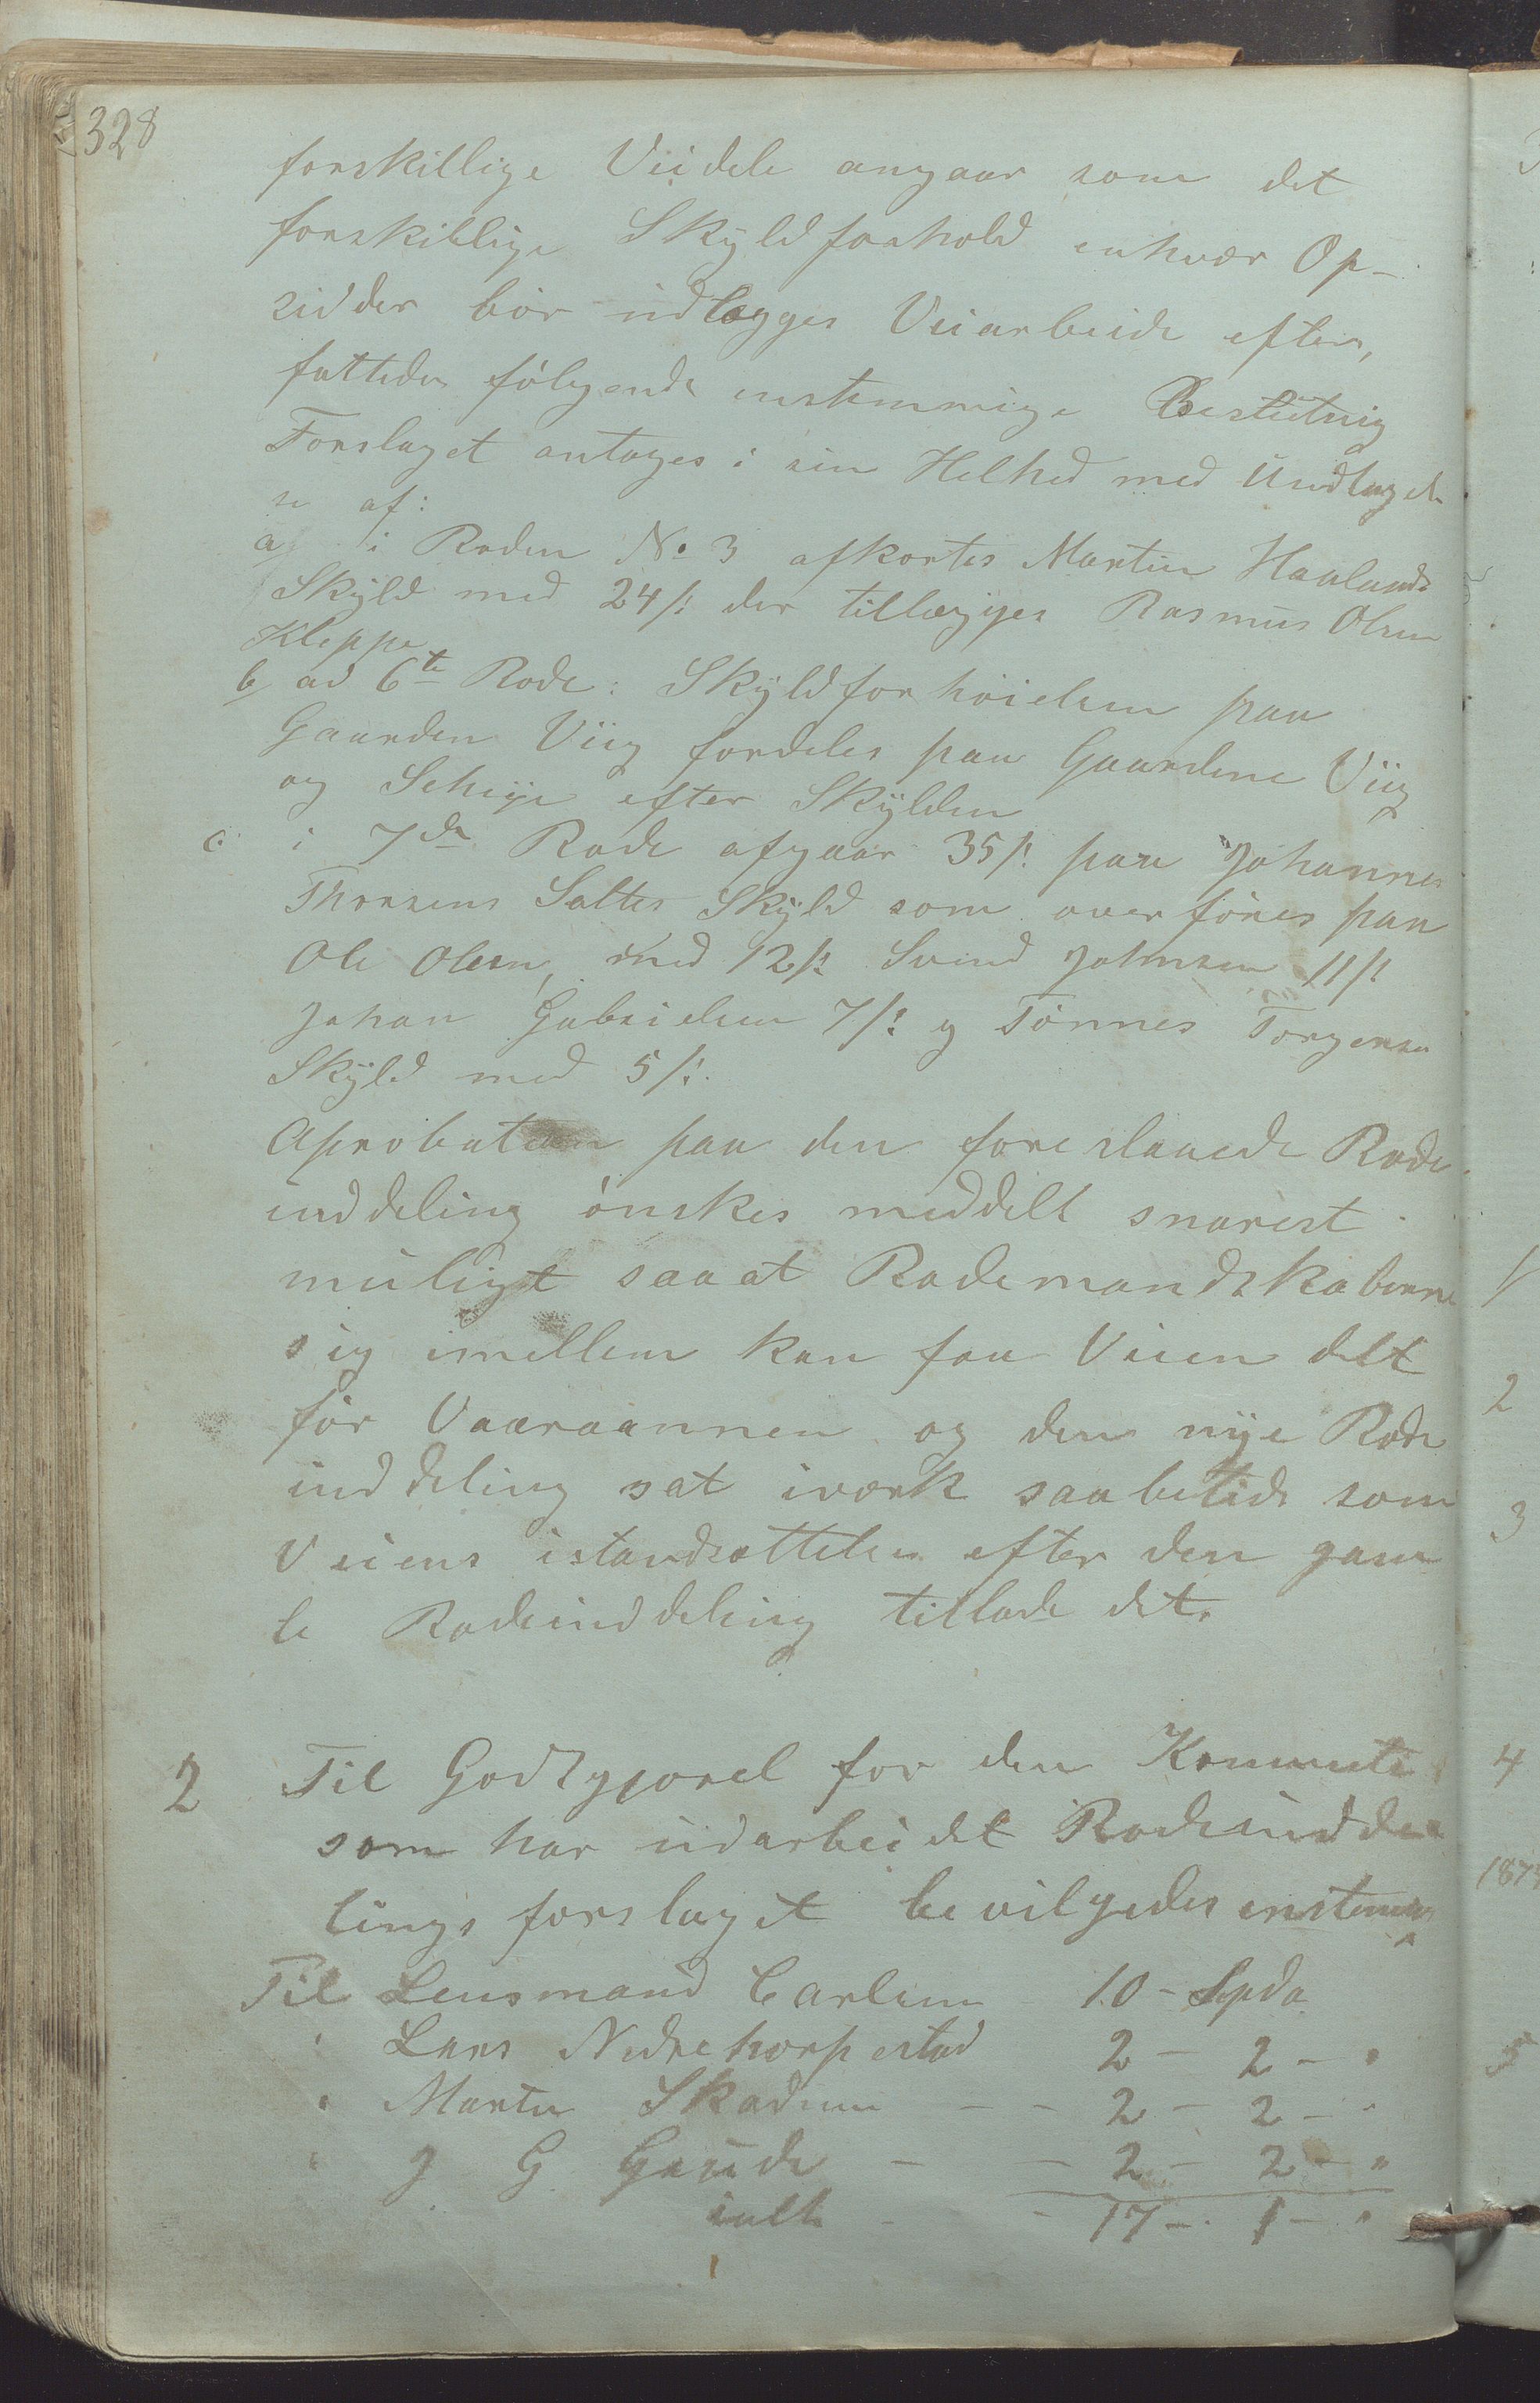 328
forskillige Veidele angaar som det
forskillige Skyldforhold enhver Op-
sidder bör udlægges Veiarbeide efter,
fattedes fölgende enstemmige Beslutnig
Forslaget antages i sin Helhed med Undtagel
se af:
a/ i Roden No. 3 afkortes Martin Haalands
Skyld med 24 /: der tillægges Rasmus Olsen
Kleppe
b/ ad 6te Rode: Skyldforhöielsen paa
Gaarden Viig fordeles paa Gaardene Viig
og efter Skylden
c. i 7de Rode afgaar 35 /: paa Johannes
Thorsens Saltes Skyld som overföres paa
Ole Olsen, med 12 /: Svend Johnsen 11 /:
Johan Gabrielsen 7 /: og Tönnes Torgersen
Skyld med 5 /:
Aprobation paa den foreslaaede Rode
inddeling önskes meddelt snarest
muligt saaat Rodemandskaberne
sig imellem kan faa Veien delt
för Vaaraannen og den nye Rode
inddeling sat iværk saabetids som
Veiens istandsættelse efter den gam
le Rodeinddeling tillade det.
2 Til Godtgjörel for den Kommite
som har udarbeidet Rodeindde
lings forslaget bevilgedes enstemig
Til Lensmand Carlsen 10 - Spda
" Lars Nedrehorpestad 2 - 2 - "
" Martin Skadsem - - 2 - 2 - "
" J G Gaude - - 2 - 2 - "
ialt - - 17 - 1 - "
1/
2
3
4
187
5